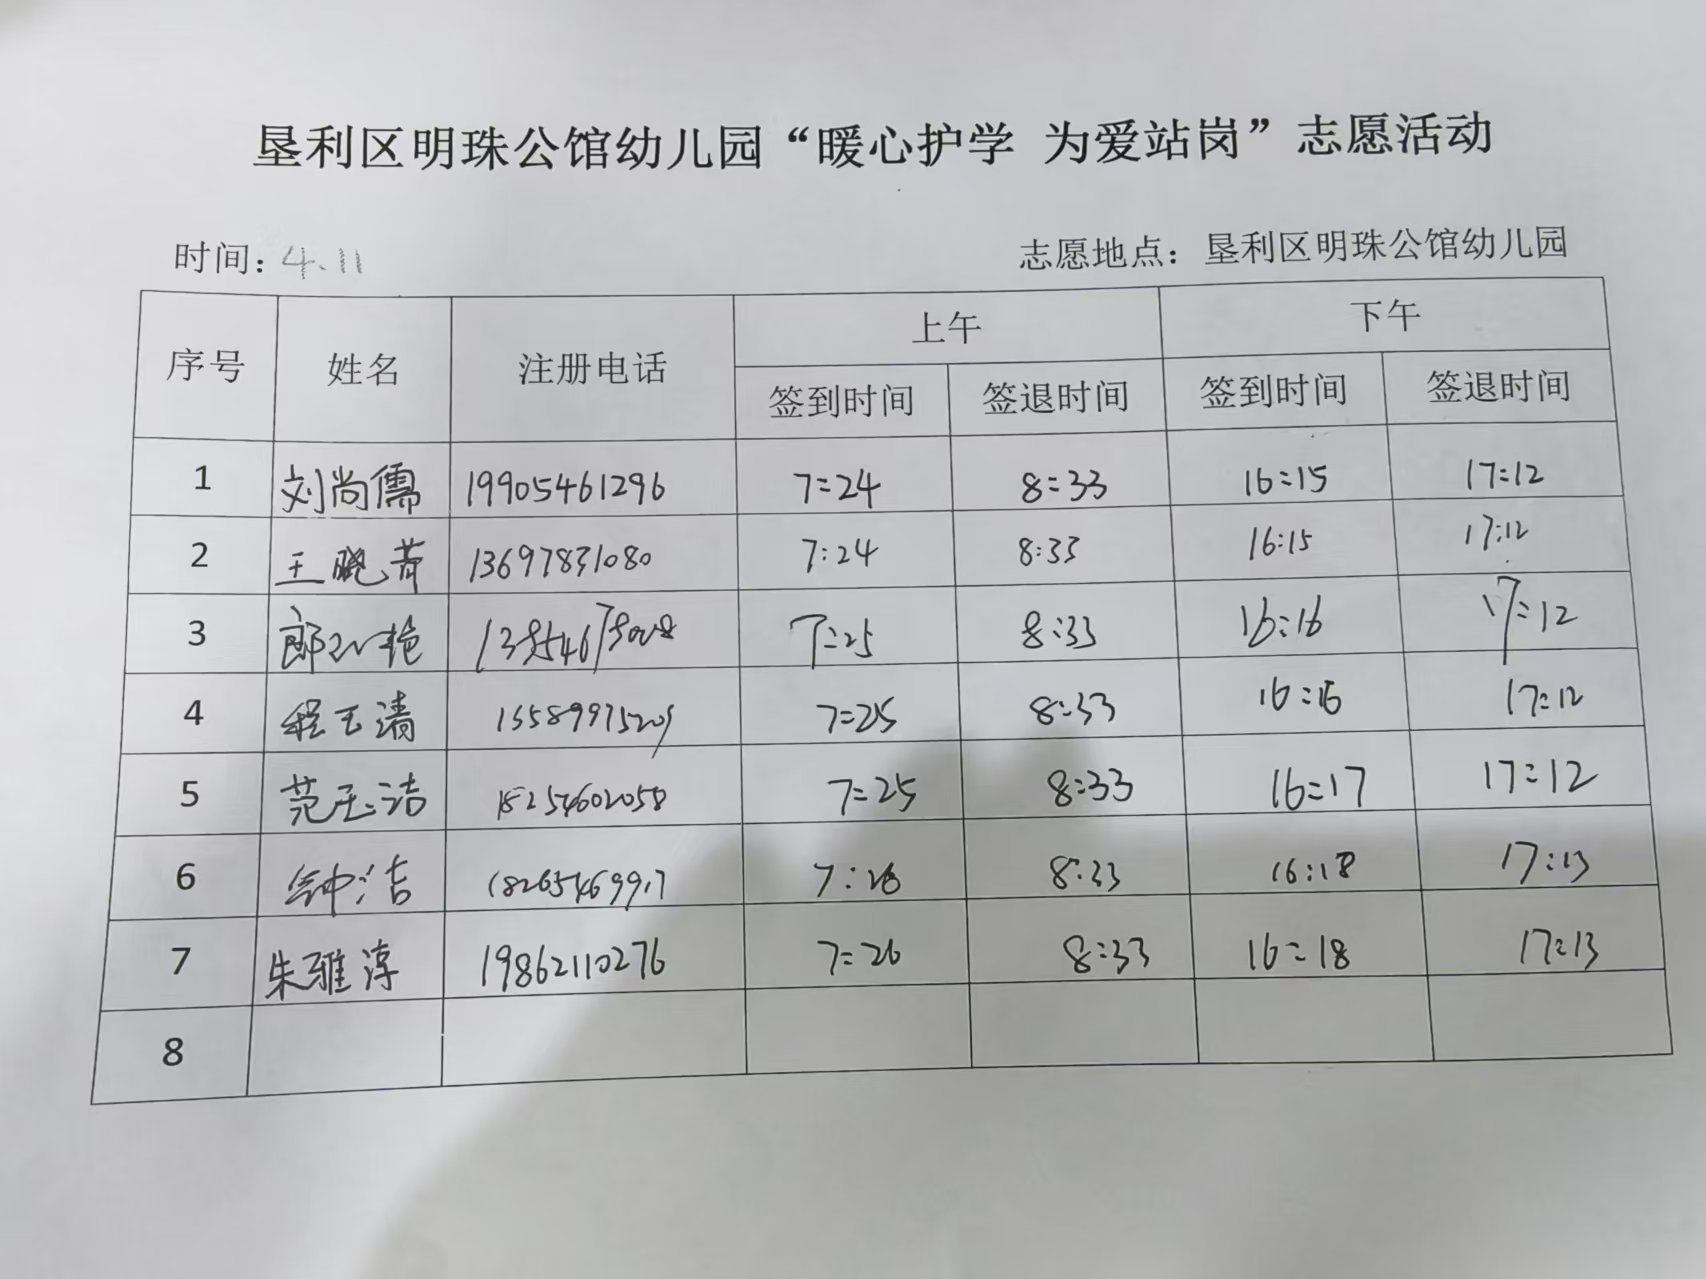 垦利区明珠公馆幼儿园“暖心护学 为爱站岗”志愿活动
时间：4.11 志愿地点：垦利区明珠公馆幼儿园
序号 姓名 注册电话 上午 下午
签到时间 签退时间 签到时间 签退时间
1 刘尚儒 19905461296 7:24 8:33 16:15 17:12
2 王晓菁 13697831080 7:24 8:33 16:15 17:12
3 7:25 8:33 16:16 17:12
4 程玉清 7:25 8:33 16:16 17:12
5 范玉洁 18254602058 7:25 8:33 16:17 17:12
6 钟洁 18265469917 7:26 8:33 16:18 17:13
7 朱雅淳 19862110276 7:26 8:33 16:18 17:13
8